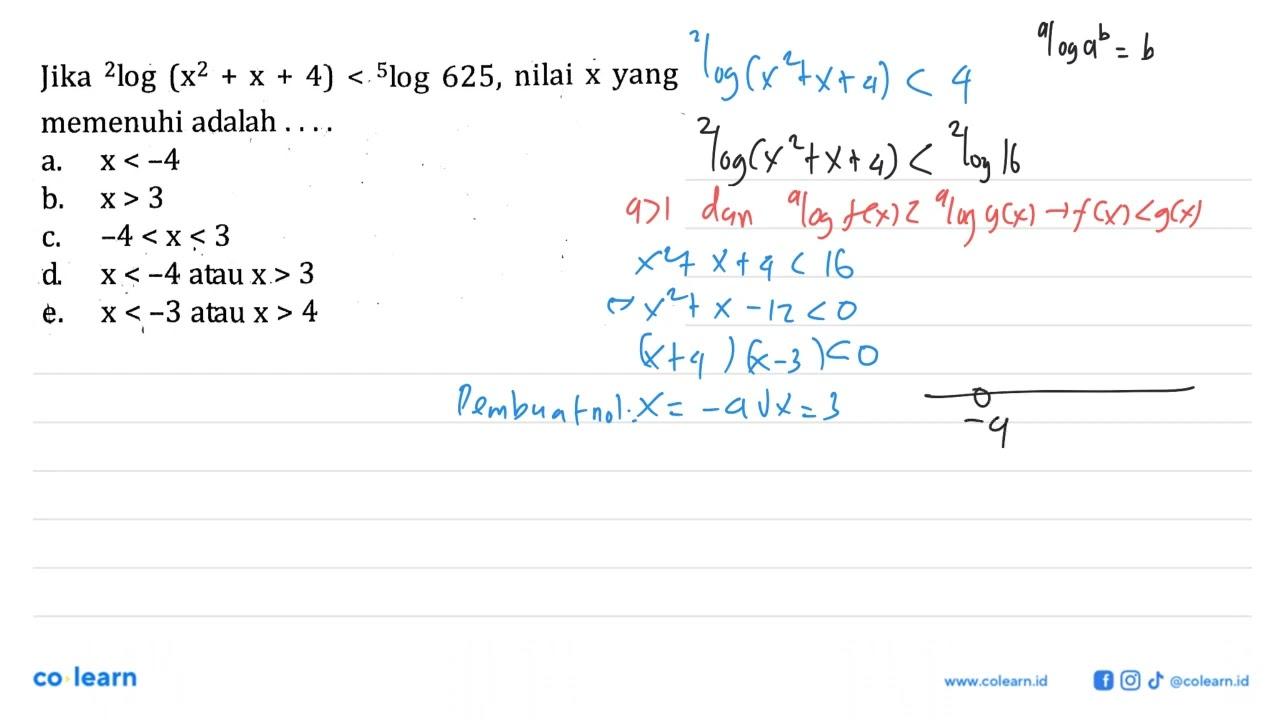 Jika ²log (x² + x + 4) < ⁵log 625, nilai x yang
memenuhi adalah . . . .
a. x < −4
b. x > 3
c. −4 < x < 3
d. x < −4 atau x > 3
e. x < −3 atau x > 4
ᵃlog aᵇ = b
²log(x²+x+4) < 4
²log(x²+x+4) < ²log 16
a>1 dan ᵃlog f(x) < ᵃlog g(x) → f(x) < g(x)
x²+x+4 < 16
⇔ x²+x−12 < 0
(x+4)(x−3) < 0
Pembuat nol: x = −4 ∨ x = 3
−4
co learn
www.colearn.id
@colearn.id